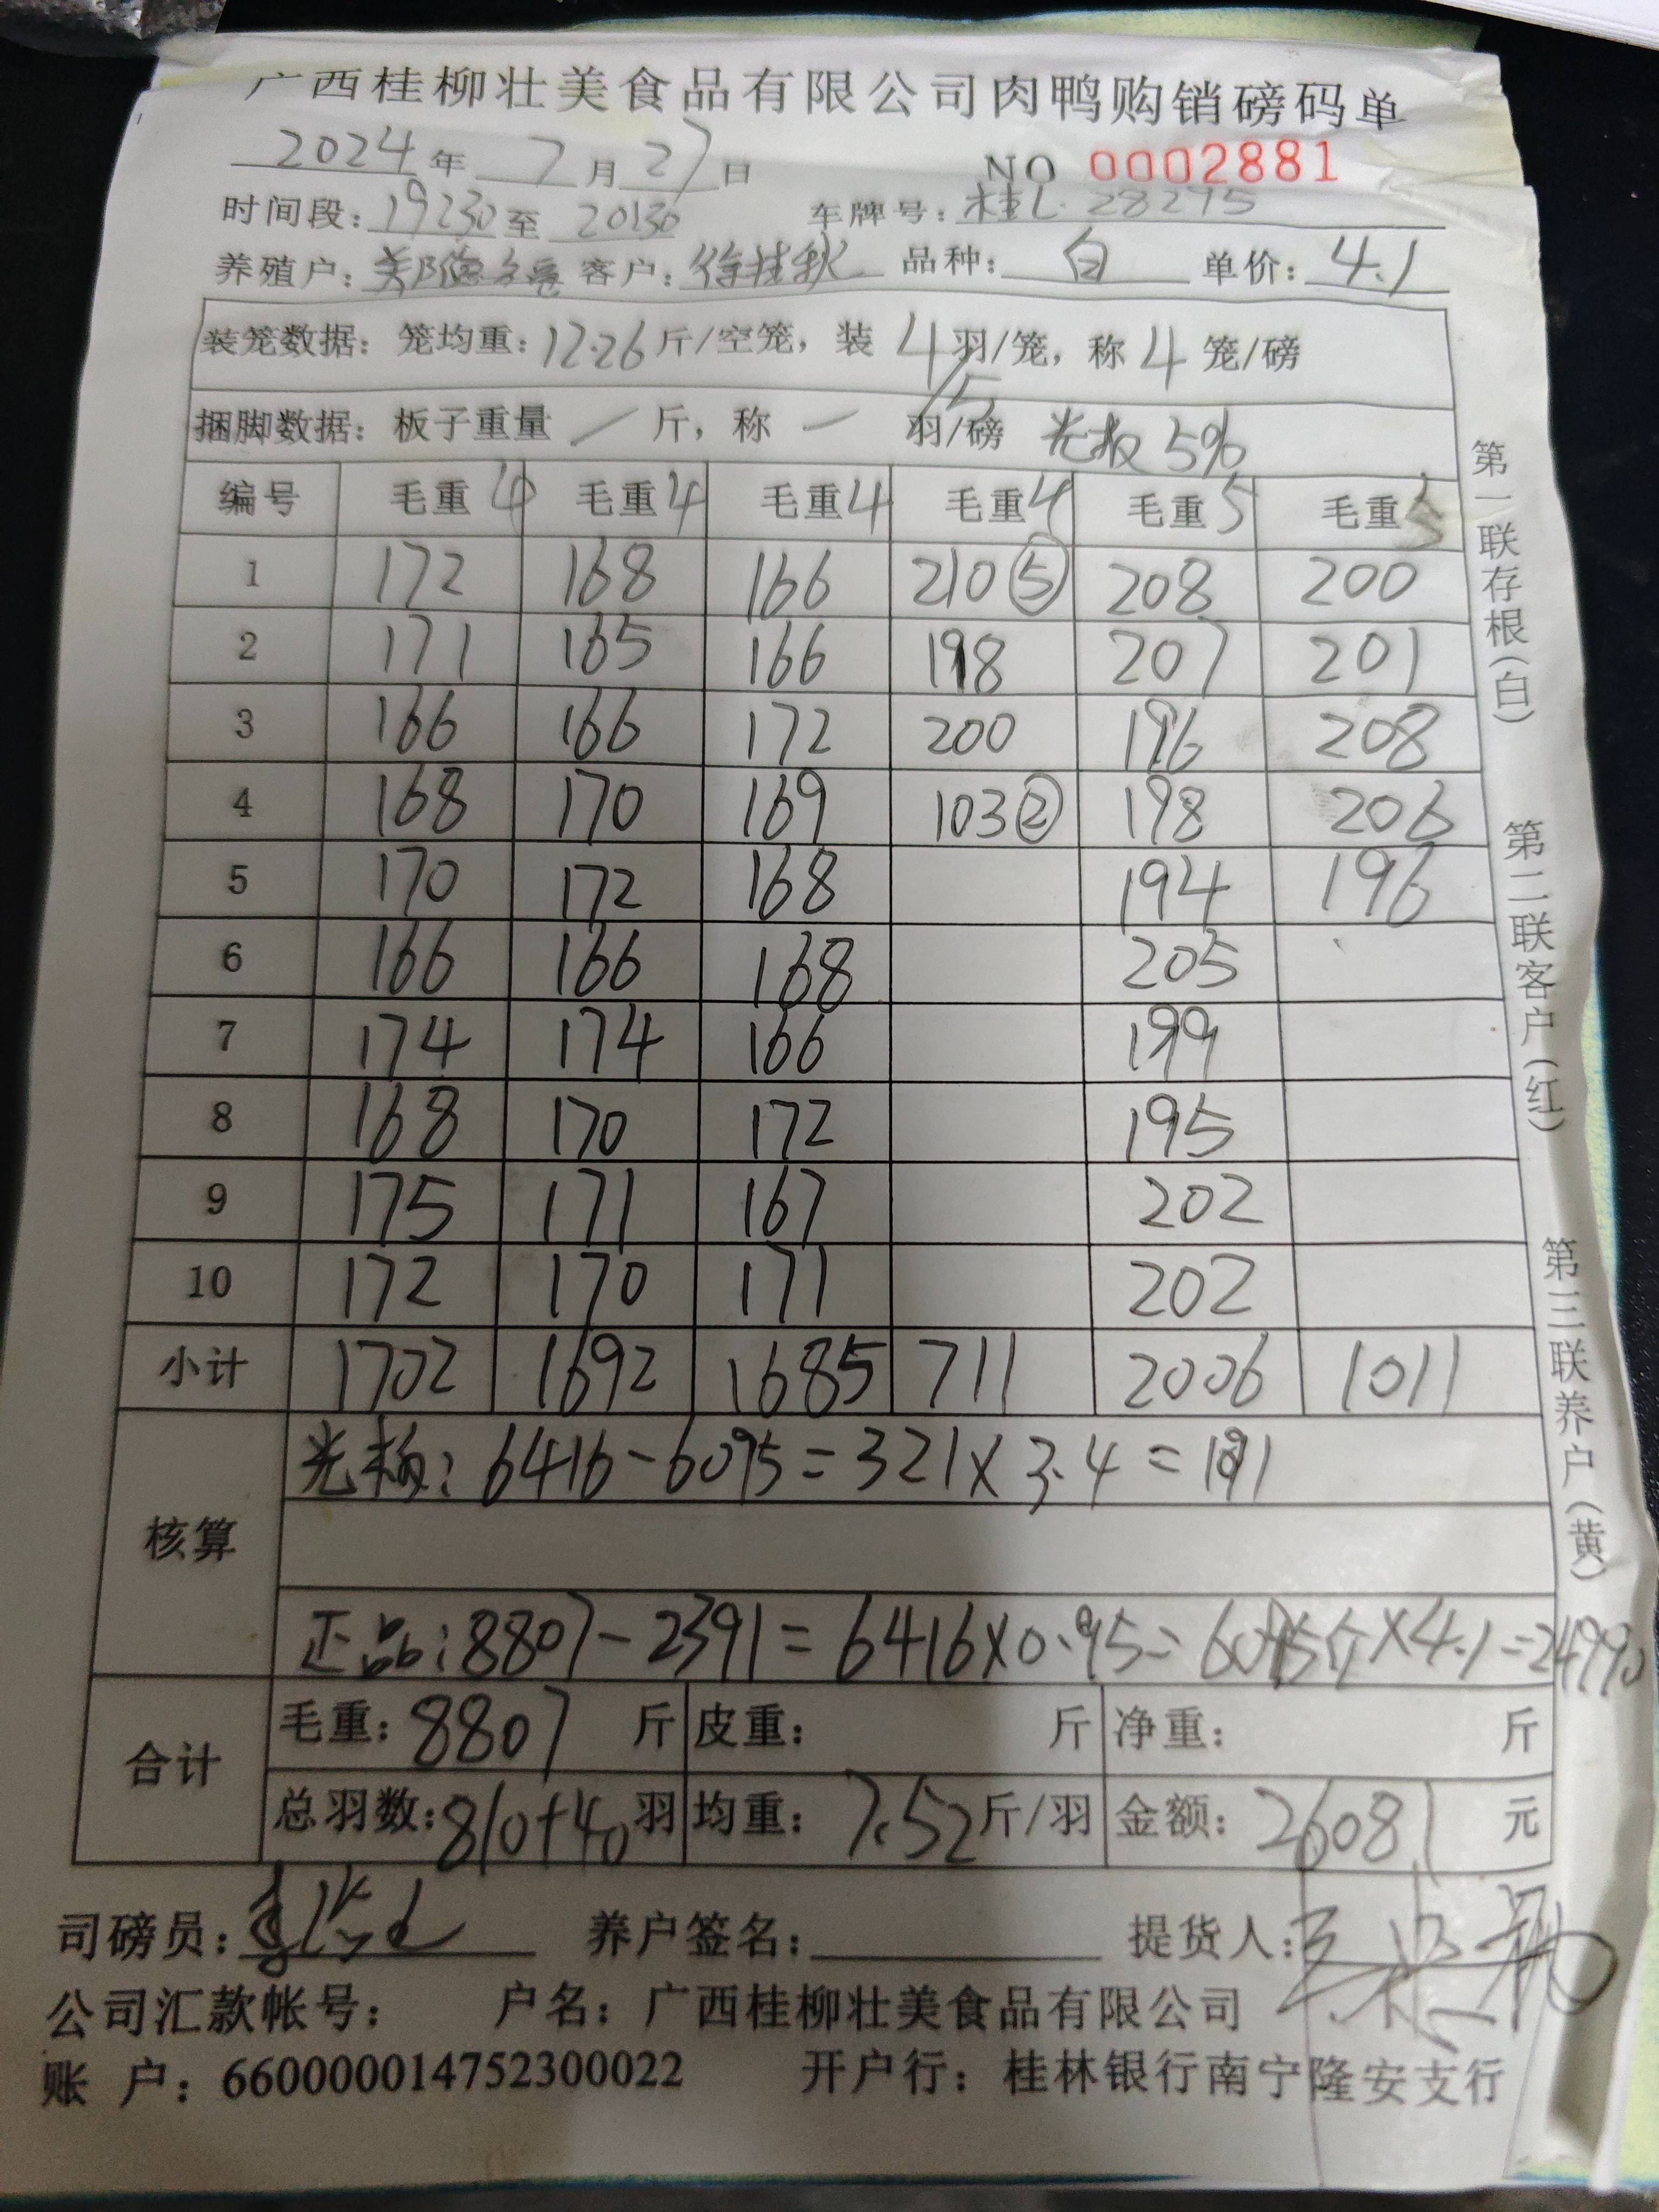 广西桂柳壮美食品有限公司肉鸭购销磅码单
2024年 7月27日 NO 0002881
时间段: 19230至 20130 车牌号: 桂L·28275
养殖户: 客户: 徐桂秋 品种: 白 单价: 4.1
装笼数据: 笼均重: 12.26斤/空笼, 装 4羽/笼, 称 4 笼/磅
/5
捆脚数据: 板子重量 / 斤, 称 一 羽/磅 光板 5%
编号 毛重4 毛重4 毛重4 毛重4 毛重5 毛重5
1 172 168 166 210⑤ 208 200
2 171 165 166 198 207 201
3 166 166 172 200 196 208
4 168 170 169 103② 198 206
5 170 172 168 194 196
6 166 166 168 205
7 174 174 166 199
8 168 170 172 195
9 175 171 167 202
10 172 170 171 202
小计 1702 1692 1685 711 2006 1011
核算
光板: 6416-6095=321×3.4=1091
正品: 8807-2391=6416×0.95=6095斤×4.1=24990
合计
毛重: 8807 斤 皮重: 斤 净重: 斤
总羽数: 810+40羽 均重: 7.52斤/羽 金额: 26081 元
司磅员: 养户签名: 提货人:
公司汇款帐号: 户名: 广西桂柳壮美食品有限公司
账 户: 660000014752300022 开户行: 桂林银行南宁隆安支行
第一联存根(白)
第二联客户(红)
第三联养户(黄)